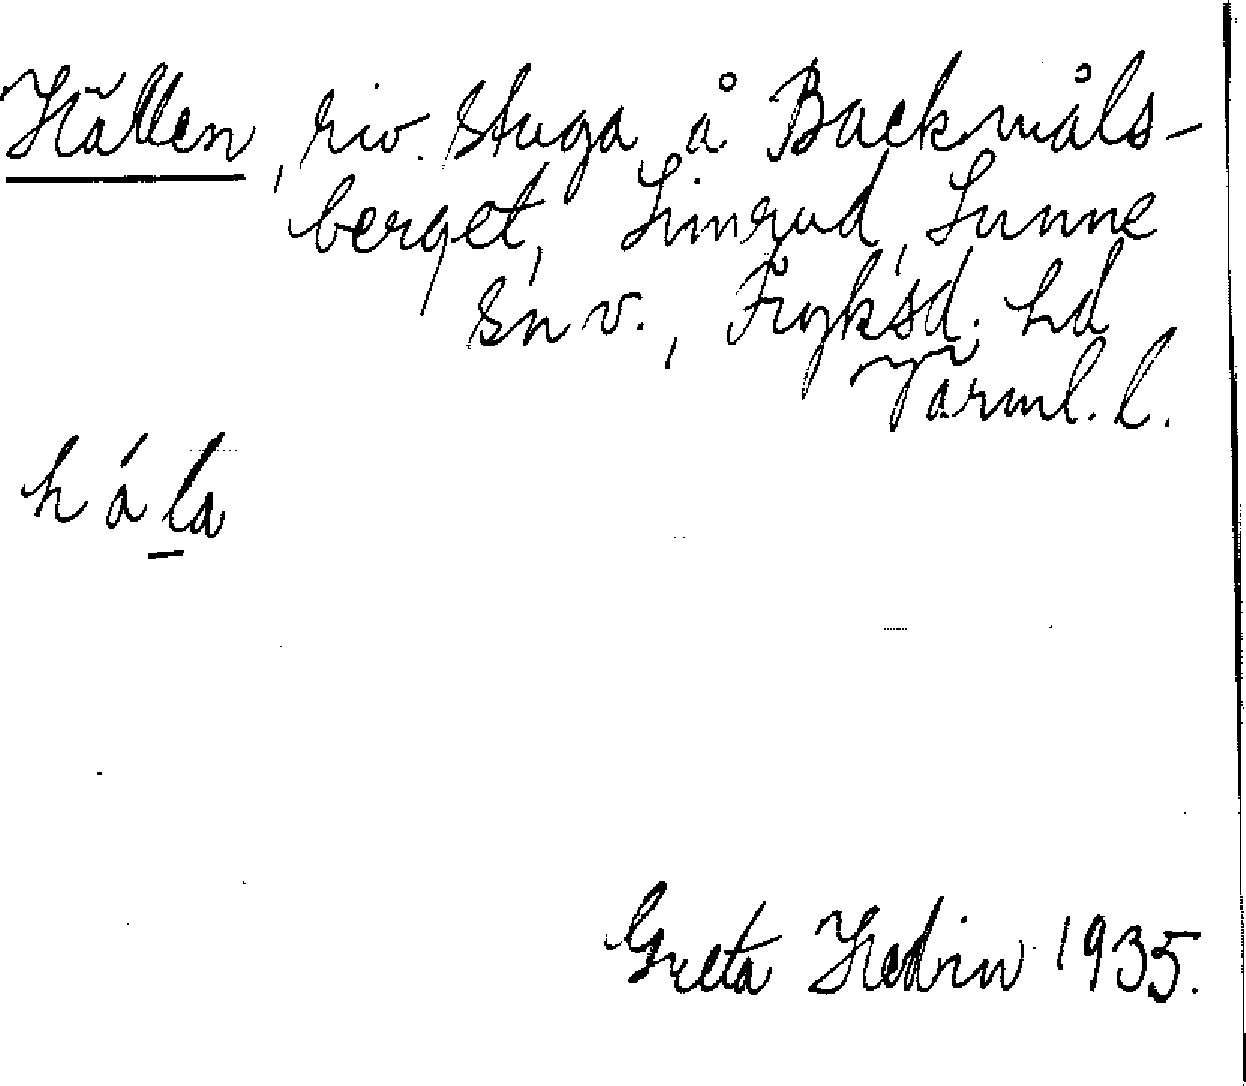 Hällen, riv. stuga å Backmåls-
berget, Limrud, Sunne
sn v., Fryksd. hd
Värml. l.
há la
Greta Hedin 1935.